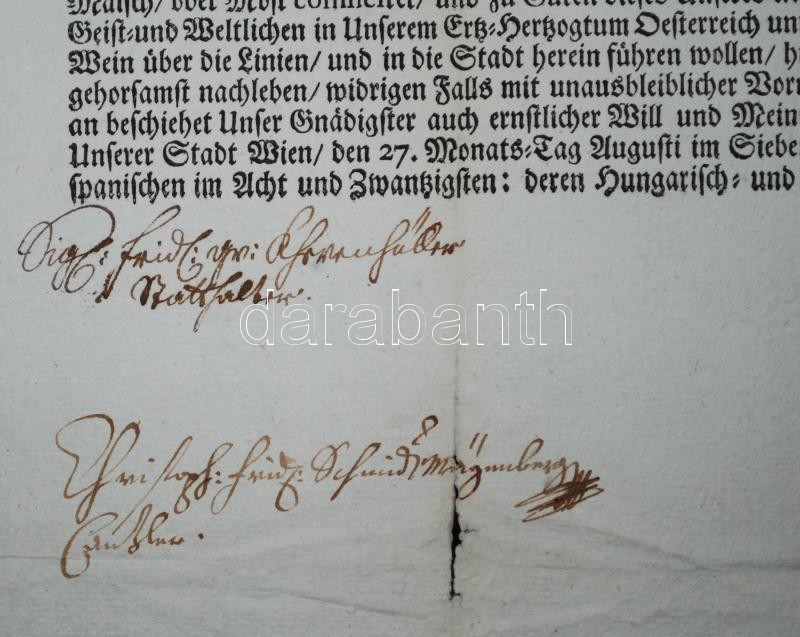 Maisch/ oder Most                 und zu Guten dieses
Geist-und Weltlichen in Unserem Ertz-Hertzogtum Oesterreich un
Wein über die Linien/ und in die Stadt herein führen wollen/ h
gehorsamst nachleben/ widrigen Falls mit unausbleiblicher Vor
an beschiehet Unser Gnädigster auch ernstlicher Will und Mein
Unserer Stadt Wien/ den 27. Monats-Tag Augusti im Siebe
spanischen im Acht und Zwantzigsten: deren Hungarisch- und
Sigl: Fridl: gr: Khevenhüller
Statthalter.
darabanth
Christoph: Frid: Schmidt Mägenberg
Cantzler.